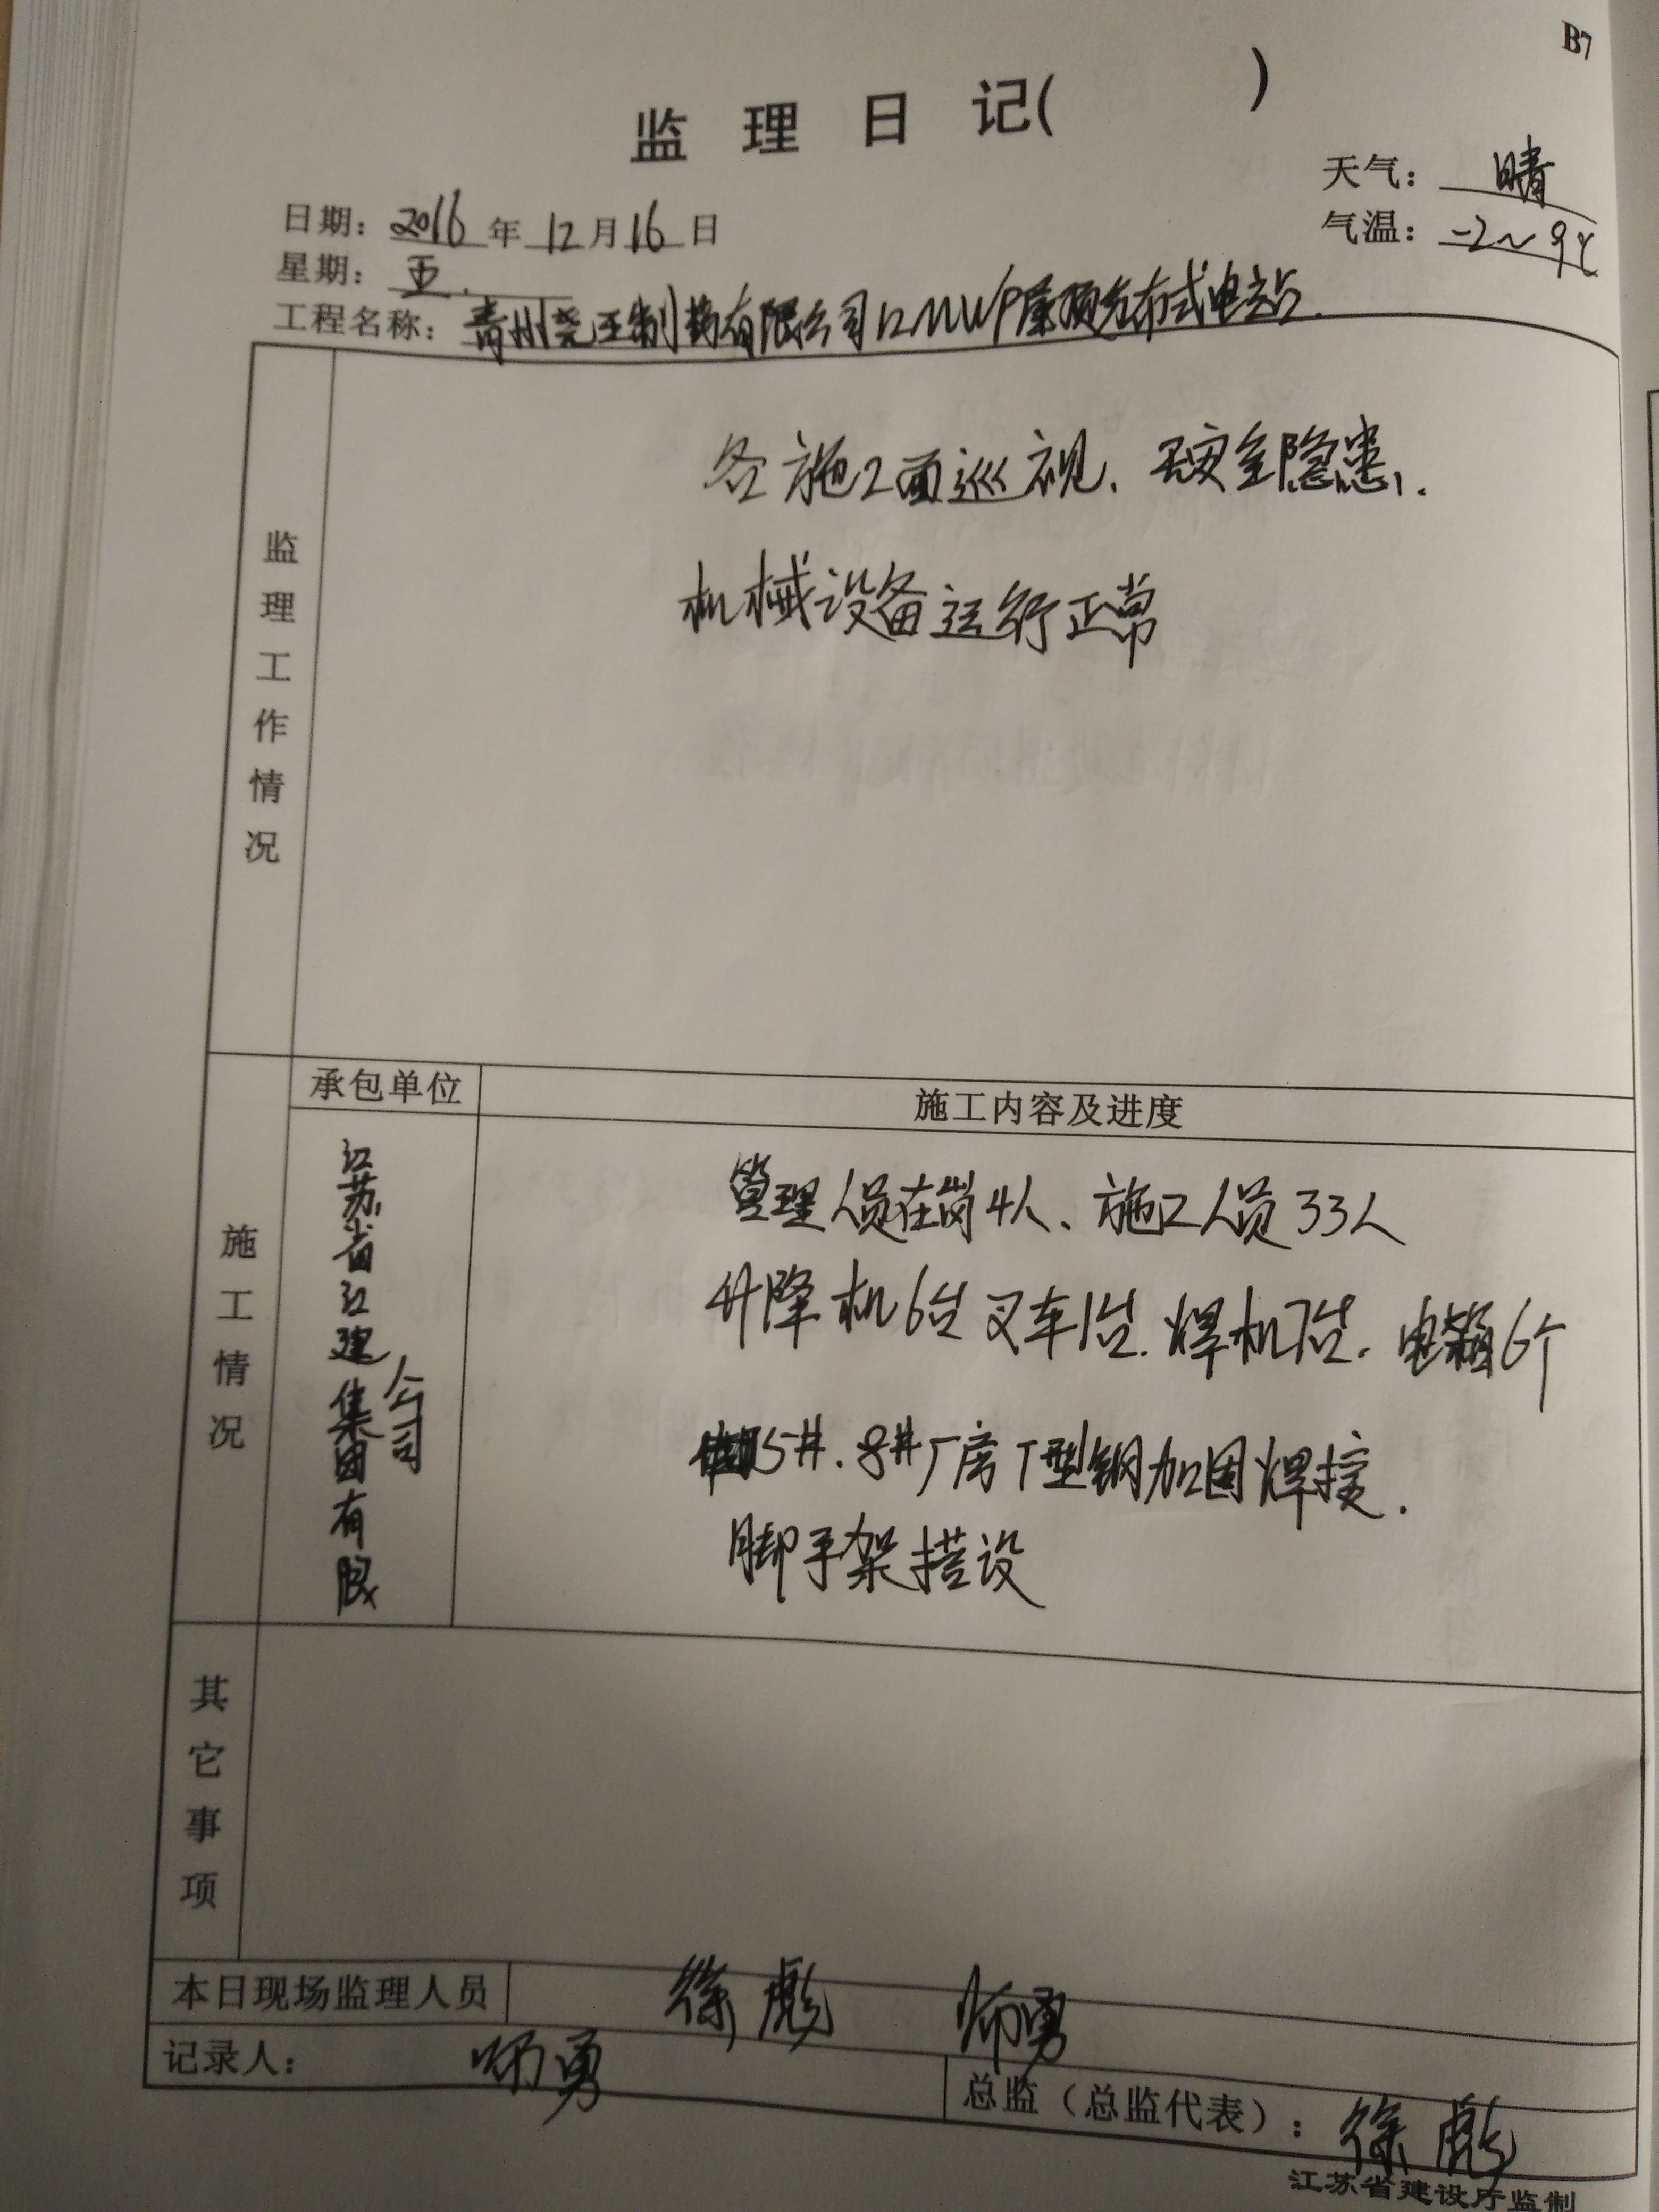 B7
监理日记( )
天气：晴
日期：2016年12月16日
气温：-2～9℃
星期：五.
工程名称：青州尧王制药有限公司12MWP屋顶分布式电站.
监理工作情况
各施工面巡视、无安全隐患、.
机械设备运行正常
施工情况
承包单位
施工内容及进度
江苏省江建集团有限公司
管理人员在岗4人、施工人员33人
升降机6台叉车1台.焊机7台.电箱6个
5#.8#厂房T型钢加固焊接.
脚手架搭设
其它事项
本日现场监理人员 徐彪 师勇
记录人： 师勇
总监（总监代表）：徐彪
江苏省建设厅监制